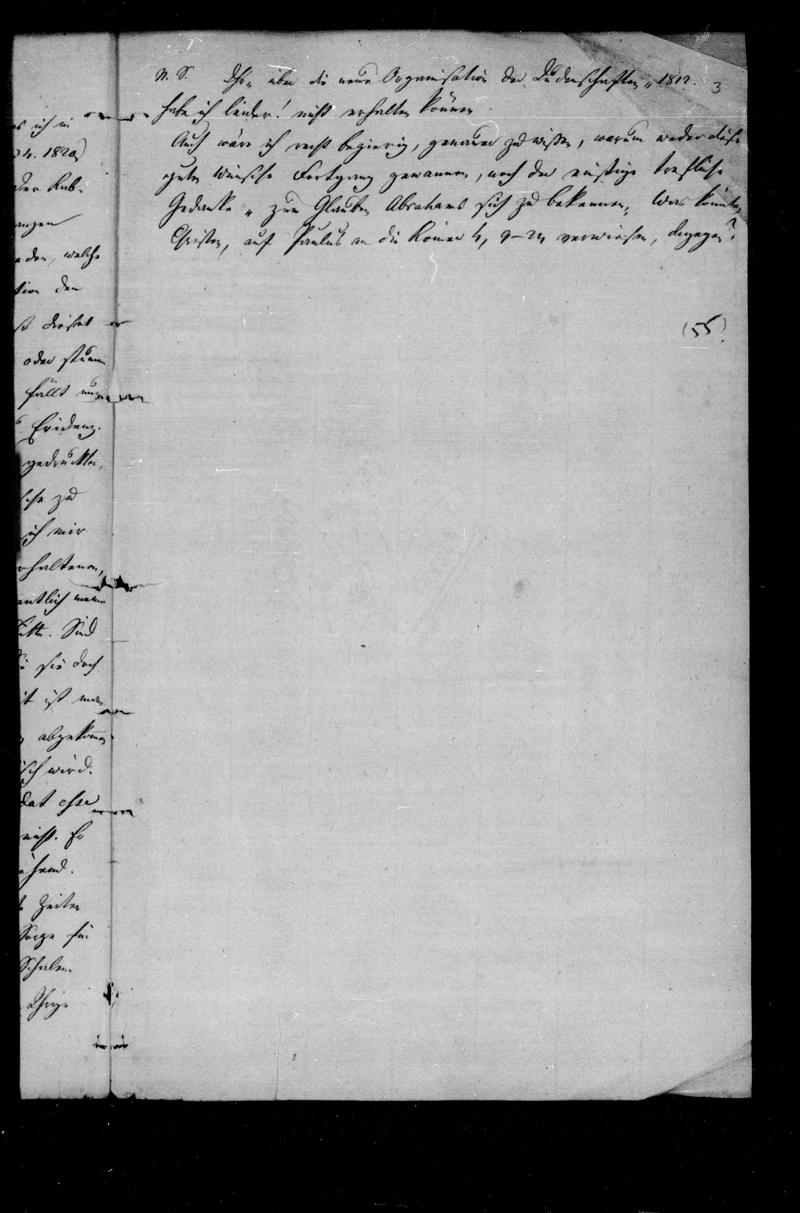 N. S. Ihr „über die neue Organisation der Judenschaften„ 1812. 3
habe ich leider! nicht erhalten können.
Auch wäre ich recht begierig, genauer zu wissen, warum weder diese
guten Wünsche Fortgang gewannen, noch der einstige treffliche
Gedanke „zum Glauben Abrahams sich zu bekennen„ Was könnten
Christen, auf Paulus an die Römer 4, 9–24 verwiesen, dagegen?
(55)
ich in
4. 1820
der Rab-
ungen
den, welche
tion den
dieses
oder stumm
fällt
Evidenz.
gedruckten,
zu
ich mir
erhaltenen,
entlich meine
Bitte. Sind
sie doch
ist man
abgekommen
isch wird.
dat esse
nicht. Er
Zeiten
Sorge für
Schulen.
Ihrige